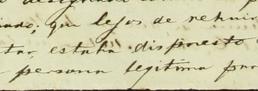 designado
inado, que lejos de rehuir
tar, estaba dispuesto
persona legitima par